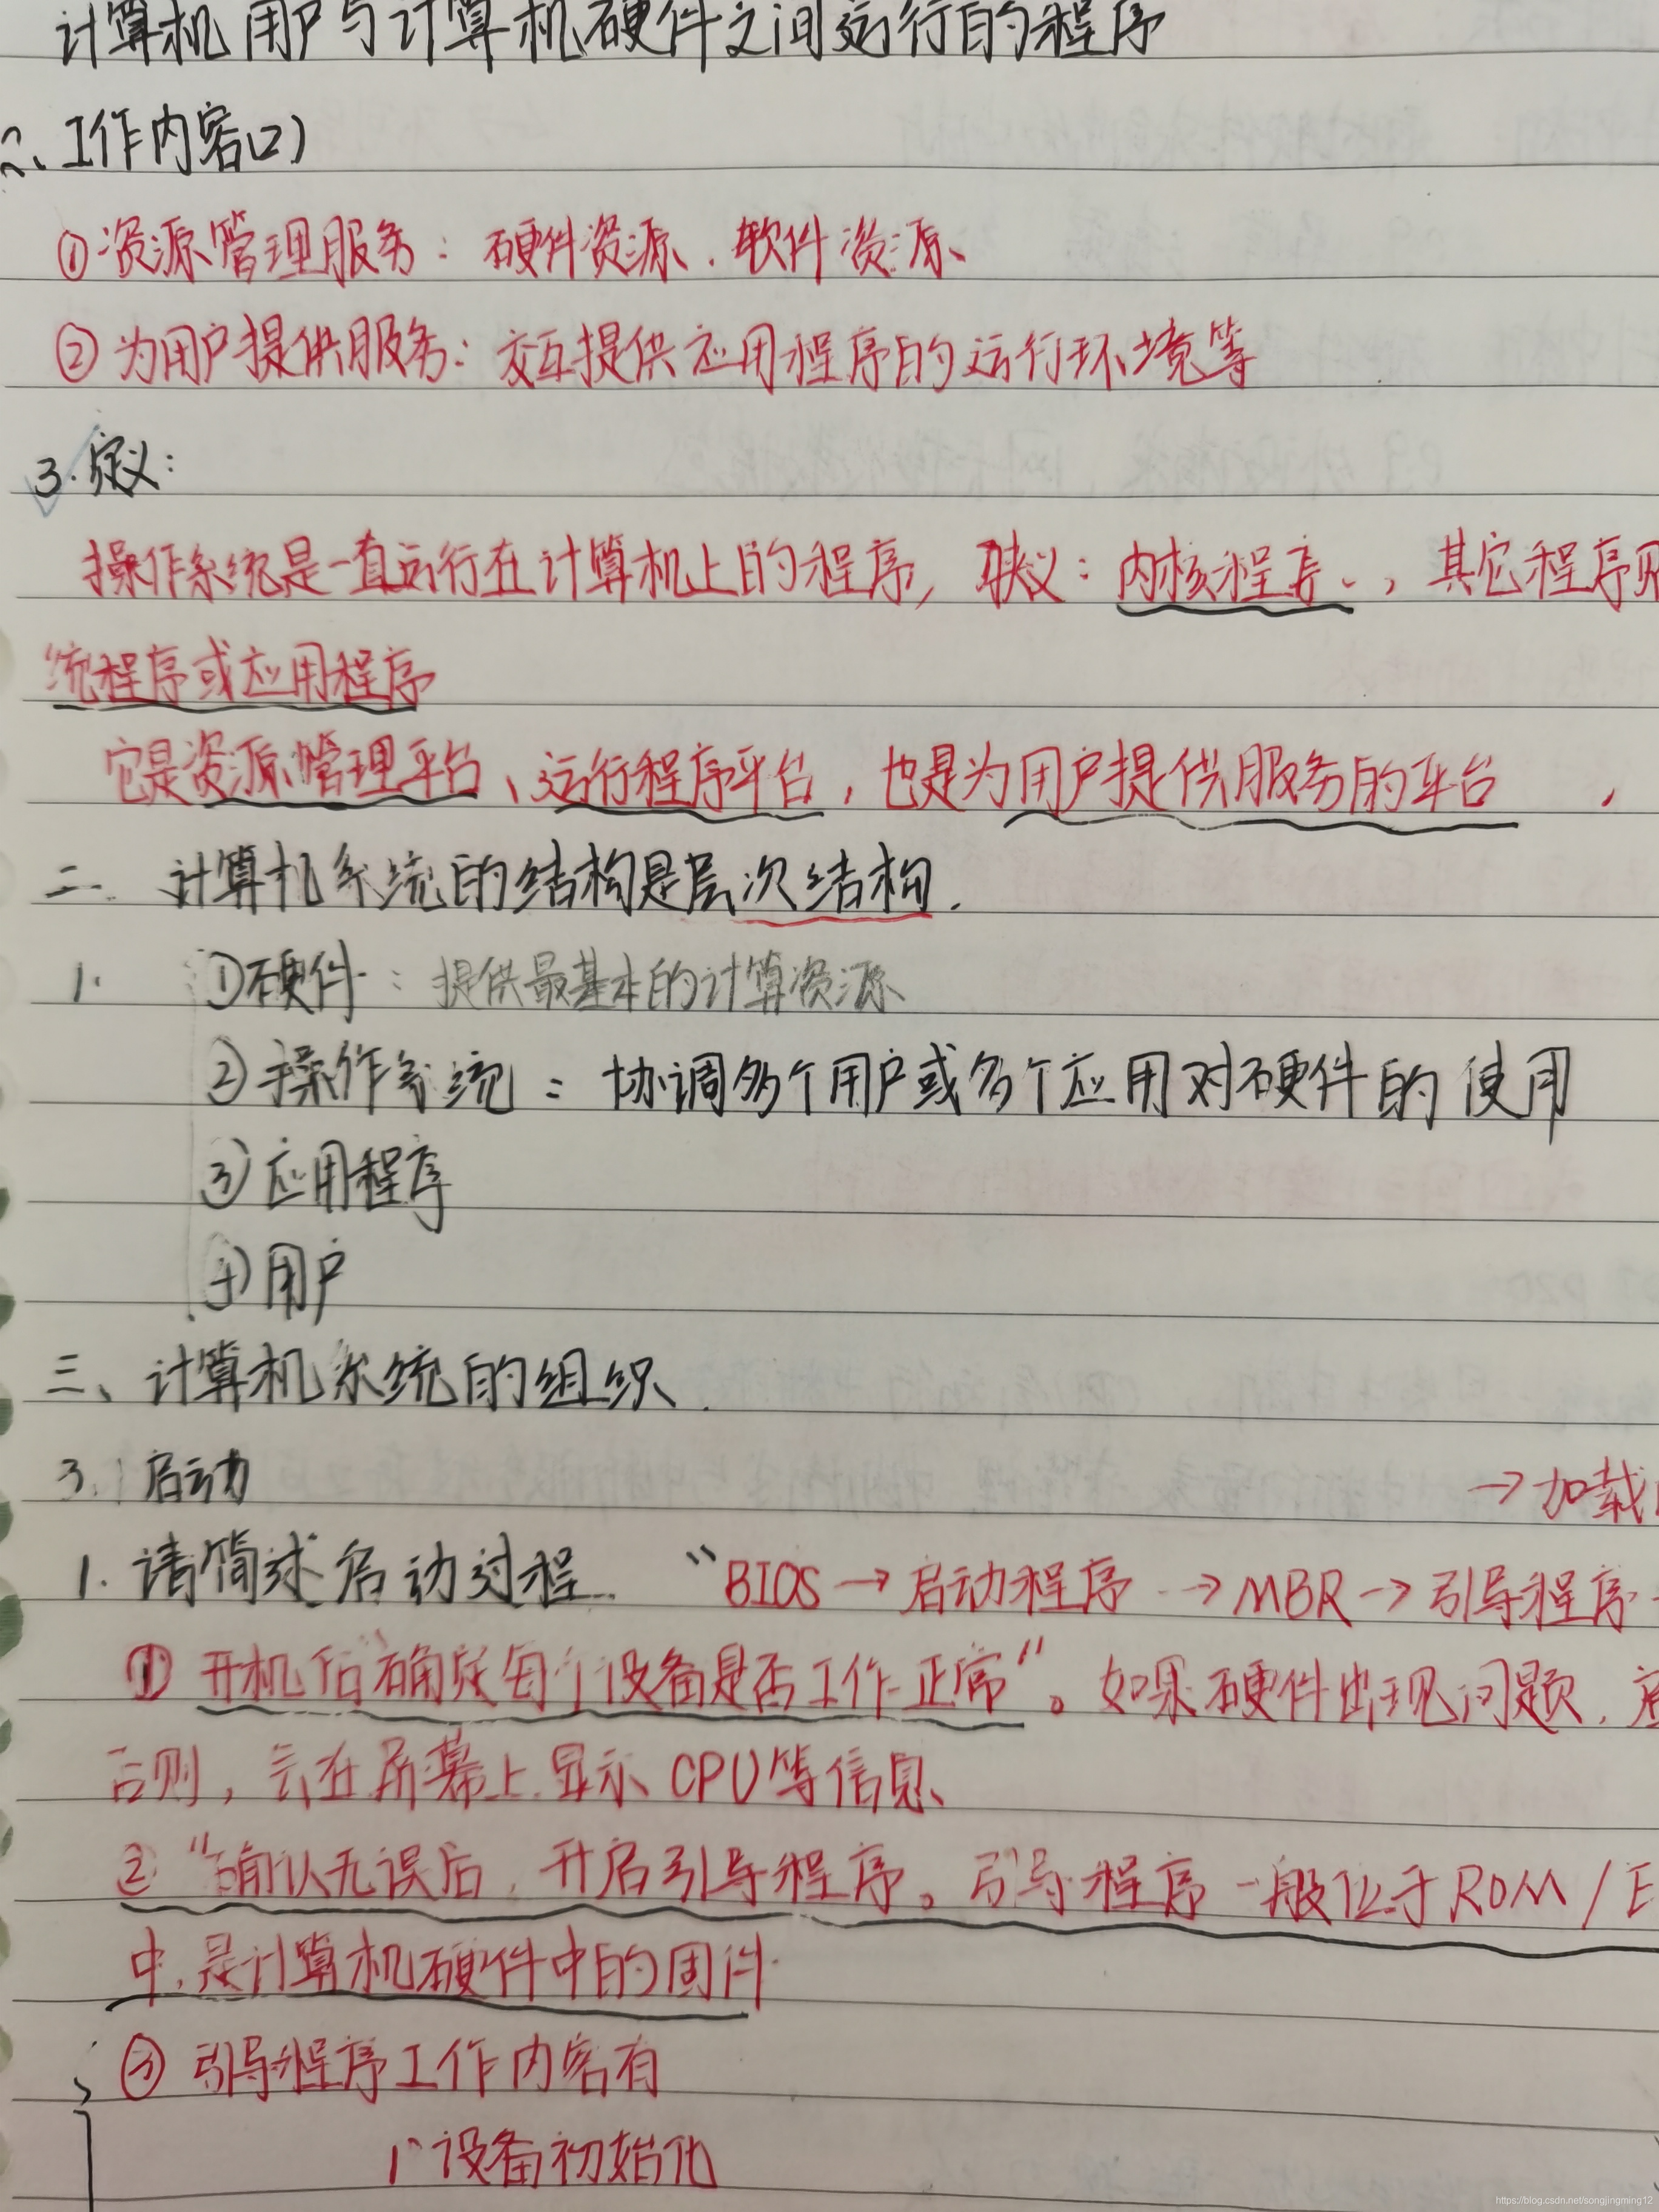 计算机用户与计算机硬件之间运行的程序
2、工作内容(2)
①资源管理服务：硬件资源、软件资源、
②为用户提供服务：交互提供应用程序的运行环境等
3.定义：
操作系统是一直运行在计算机上的程序，狭义：内核程序、，其它程序则
统程序或应用程序
它是资源管理平台、运行程序平台，也是为用户提供服务的平台，
二、计算机系统的结构是层次结构.
1. ①硬件：提供最基本的计算资源
②操作系统：协调多个用户或多个应用对硬件的使用
③应用程序
④用户
三、计算机系统的组织.
3.1 启动
→加载
1.请简述启动过程. "BIOS→启动程序→MBR→引导程序
① 开机后"确定每个设备是否工作正常"。如果硬件出现问题，
否则，会在屏幕上显示CPU等信息、
② "确认无误后，开启引导程序。引导程序一般位于ROM/E
中，是计算机硬件中的固件.
③ 引导程序工作内容有
1°设备初始化
https://blog.csdn.net/songjingming12